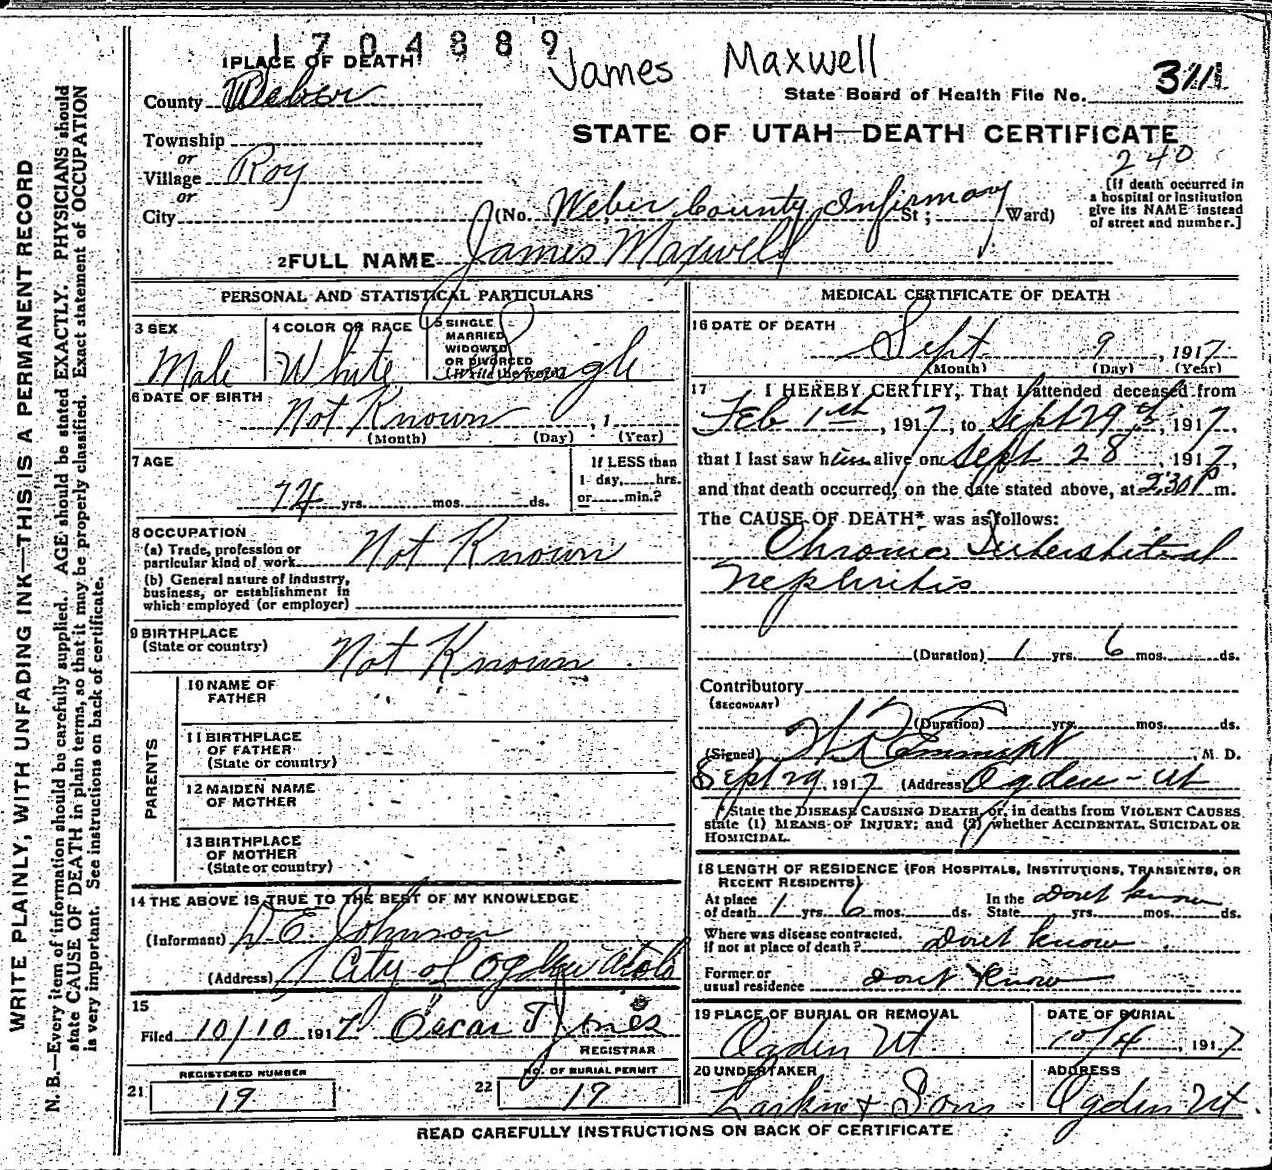 1704889
James Maxwell
1 PLACE OF DEATH
County Weber
State Board of Health File No. 311
STATE OF UTAH—DEATH CERTIFICATE
240
Township
or
Village Roy
or
City (No. Weber County Infirmary St; Ward)
[If death occurred in
a hospital or institution
give its NAME instead
of street and number.]
2 FULL NAME James Maxwell
PERSONAL AND STATISTICAL PARTICULARS
3 SEX
Male
4 COLOR OR RACE
White
5 SINGLE
MARRIED
WIDOWED
OR DIVORCED
(Write the word)
Single
6 DATE OF BIRTH
Not Known , 1
(Month) (Day) (Year)
7 AGE
74 yrs. mos. ds.
If LESS than
1 day, hrs.
or min.?
8 OCCUPATION
(a) Trade, profession or
particular kind of work Not Known
(b) General nature of industry,
business, or establishment in
which employed (or employer)
9 BIRTHPLACE
(State or country)
Not Known
PARENTS
10 NAME OF
FATHER
11 BIRTHPLACE
OF FATHER
(State or country)
12 MAIDEN NAME
OF MOTHER
13 BIRTHPLACE
OF MOTHER
(State or country)
14 THE ABOVE IS TRUE TO THE BEST OF MY KNOWLEDGE
(Informant) D E Johnson
(Address) City of Ogden
15
Filed 10/10 1917 Oscar T Jones
REGISTRAR
REGISTERED NUMBER
21 19
NO. OF BURIAL PERMIT
22 17
MEDICAL CERTIFICATE OF DEATH
16 DATE OF DEATH
Sept 9, 1917
(Month) (Day) (Year)
17 I HEREBY CERTIFY, That I attended deceased from
Feb 1st, 1917, to Sept 29th, 1917,
that I last saw him alive on Sept 28, 1917,
and that death occurred, on the date stated above, at 2:30 P m.
The CAUSE OF DEATH* was as follows:
Chronic Interstitial
Nephritis
(Duration) 1 yrs. 6 mos. ds.
Contributory
(SECONDARY)
(Duration) yrs. mos. ds.
(Signed) , M. D.
Sept 29, 1917 (Address) Ogden - Ut
*State the DISEASE CAUSING DEATH, or, in deaths from VIOLENT CAUSES,
state (1) MEANS OF INJURY; and (2) whether ACCIDENTAL, SUICIDAL OR
HOMICIDAL.
18 LENGTH OF RESIDENCE (FOR HOSPITALS, INSTITUTIONS, TRANSIENTS, OR
RECENT RESIDENTS)
At place
of death 1 yrs. 6 mos. ds.
In the
State yrs. mos. ds.
Dont know
Where was disease contracted,
if not at place of death? Dont know
Former or
usual residence dont know
19 PLACE OF BURIAL OR REMOVAL
Ogden Ut
DATE OF BURIAL
10/4, 1917
20 UNDERTAKER
Larkin & Sons
ADDRESS
Ogden Ut.
READ CAREFULLY INSTRUCTIONS ON BACK OF CERTIFICATE
WRITE PLAINLY, WITH UNFADING INK—THIS IS A PERMANENT RECORD
N. B.—Every item of information should be carefully supplied. AGE should be stated EXACTLY. PHYSICIANS should
state CAUSE OF DEATH in plain terms, so that it may be properly classified. Exact statement of OCCUPATION
is very important. See instructions on back of certificate.